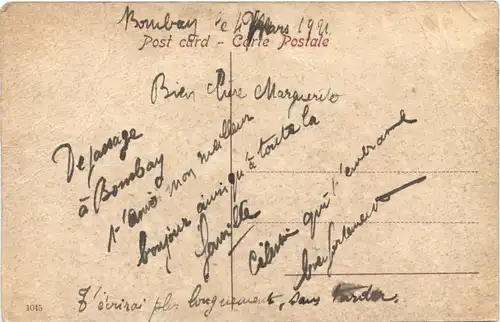 Bombay le 4 Mars 1921
Post card - Carte Postale
Bien Chère Marguerite
De passage
à Bombay
t'envoi mon meilleur
bonjour ainsi qu'à toute la
famille
Célestin qui t'embrasse
bien fortement
T'écrirai plus longuement, sans tarder.
1045